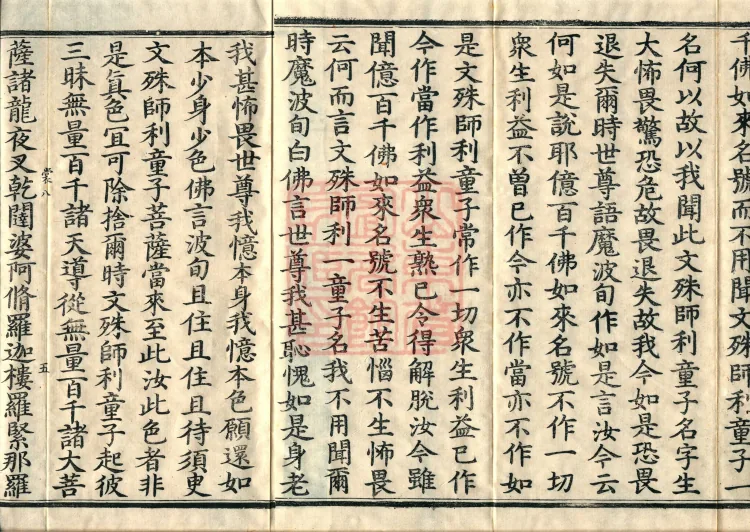 千佛如來名號而不用聞文殊師利童子一
名何以故以我聞此文殊師利童子名字生
大怖畏驚恐危故畏退失故我今如是恐畏
退失爾時世尊語魔波旬作如是言汝今云
何如是說耶億百千佛如來名號不作一切
衆生利益不曽已作今亦不作當亦不作如
是文殊師利童子常作一切衆生利益已作
今作當作利益衆生熟已令得解脫汝今雖
聞億百千佛如來名號不生苦惱不生怖畏
云何而言文殊師利一童子名我不用聞爾
時魔波旬白佛言世尊我甚恥愧如是身老
我甚怖畏世尊我憶本身我憶本色願還如
本少身少色佛言波旬且住且住且待須臾
文殊師利童子菩薩當來至此汝此色者非
是眞色宜可除捨爾時文殊師利童子起彼
三昧無量百千諸天導從無量百千諸大菩
棠八 五
薩諸龍夜叉乾闥婆阿脩羅迦樓羅緊那羅